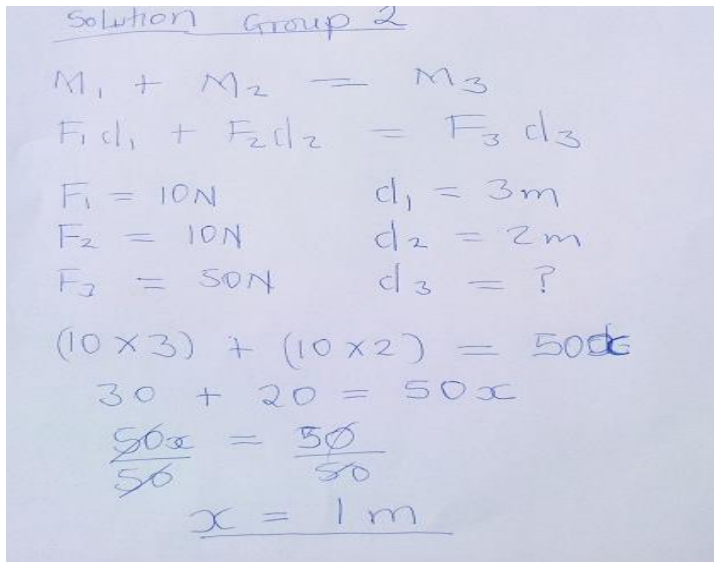 Solution Group 2
M₁ + M₂ = M₃
F₁d₁ + F₂d₂ = F₃ d₃
F₁ = 10N d₁ = 3m
F₂ = 10N d₂ = 2m
F₃ = 50N d₃ = ?
(10 × 3) + (10 × 2) = 50x
30 + 20 = 50x
50x/50 = 50/50
x = 1m